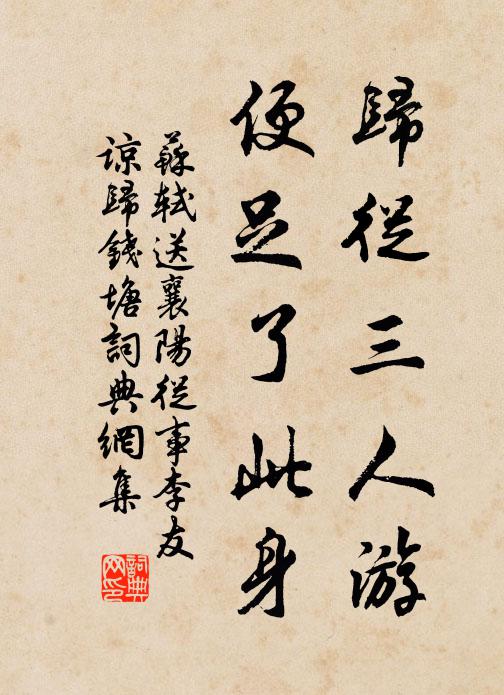 歸從三人游
便足了此身
蘇軾送襄陽從事李友
諒歸錢塘詞典網集
詞典网印